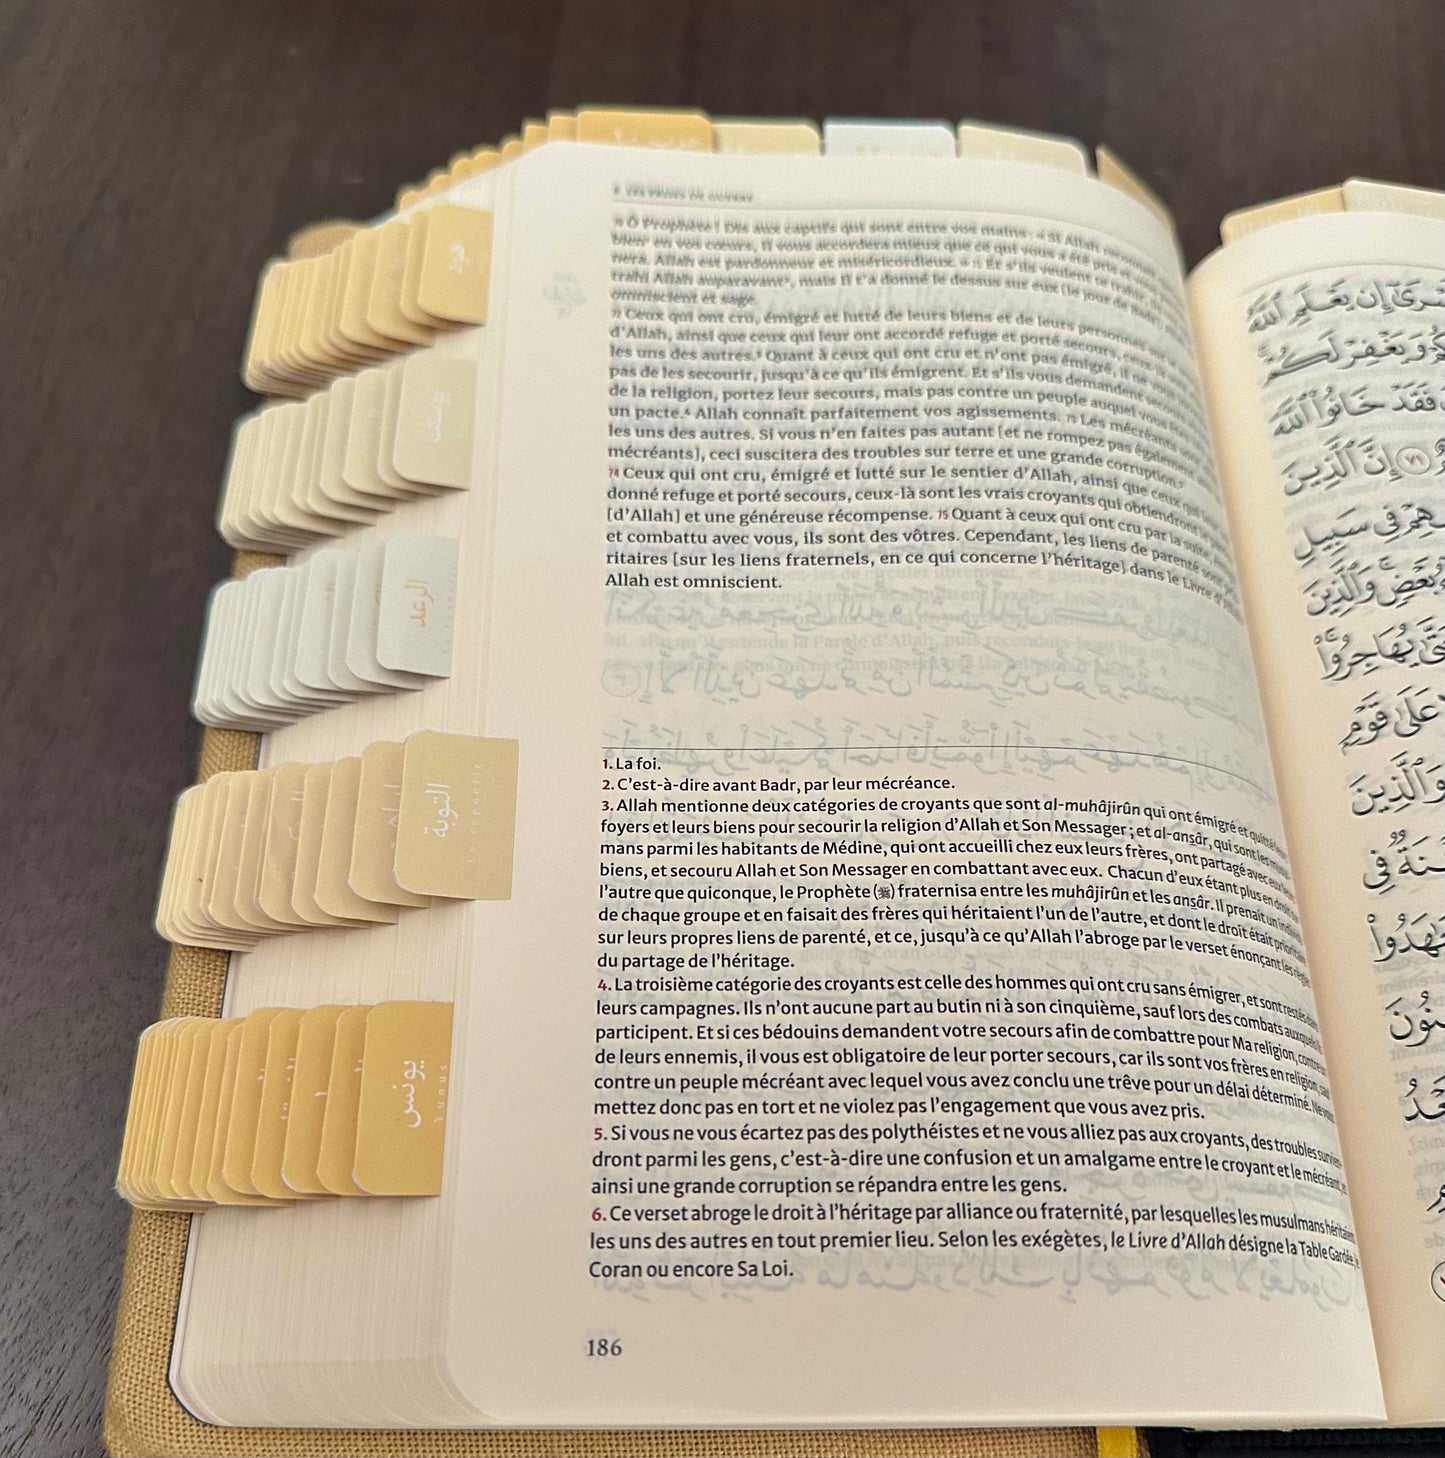 8 LES PRISES DE GUERRE
70 Ô Prophète ! Dis aux captifs qui sont entre vos mains : « Si Allah reconnaît
bien¹ en vos cœurs, Il vous accordera mieux que ce qui vous a été pris et vous
nera. Allah est pardonneur et miséricordieux. » 71 Et s'ils veulent te trahir,
trahi Allah auparavant², mais Il t'a donné le dessus sur eux [le jour de Badr].
omniscient et sage.
72 Ceux qui ont cru, émigré et lutté de leurs biens et de leurs personnes sur le
d'Allah, ainsi que ceux qui leur ont accordé refuge et porté secours, ceux-là sont
les uns des autres.³ Quant à ceux qui ont cru et n'ont pas émigré, il ne vous
pas de les secourir, jusqu'à ce qu'ils émigrent. Et s'ils vous demandent secours
de la religion, portez leur secours, mais pas contre un peuple auquel vous êtes
un pacte.⁴ Allah connaît parfaitement vos agissements. 73 Les mécréants
les uns des autres. Si vous n'en faites pas autant [et ne rompez pas également
mécréants], ceci suscitera des troubles sur terre et une grande corruption.⁵
74 Ceux qui ont cru, émigré et lutté sur le sentier d'Allah, ainsi que ceux qui leur
donné refuge et porté secours, ceux-là sont les vrais croyants qui obtiendront le
[d'Allah] et une généreuse récompense. 75 Quant à ceux qui ont cru par la suite,
et combattu avec vous, ils sont des vôtres. Cependant, les liens de parenté sont
ritaires [sur les liens fraternels, en ce qui concerne l'héritage] dans le Livre d'
Allah est omniscient.
1. La foi.
2. C'est-à-dire avant Badr, par leur mécréance.
3. Allah mentionne deux catégories de croyants que sont al-muhâjirûn qui ont émigré et quitté leurs
foyers et leurs biens pour secourir la religion d'Allah et Son Messager ; et al-ansâr, qui sont les musul-
mans parmi les habitants de Médine, qui ont accueilli chez eux leurs frères, ont partagé avec eux leurs
biens, et secouru Allah et Son Messager en combattant avec eux. Chacun d'eux étant plus en droit
l'autre que quiconque, le Prophète (ﷺ) fraternisa entre les muhâjirûn et les ansâr. Il prenait un individu
de chaque groupe et en faisait des frères qui héritaient l'un de l'autre, et dont le droit était prioritaire
sur leurs propres liens de parenté, et ce, jusqu'à ce qu'Allah l'abroge par le verset énonçant les règles
du partage de l'héritage.
4. La troisième catégorie des croyants est celle des hommes qui ont cru sans émigrer, et sont restés dans
leurs campagnes. Ils n'ont aucune part au butin ni à son cinquième, sauf lors des combats auxquels ils
participent. Et si ces bédouins demandent votre secours afin de combattre pour Ma religion, contre
de leurs ennemis, il vous est obligatoire de leur porter secours, car ils sont vos frères en religion, sauf
contre un peuple mécréant avec lequel vous avez conclu une trêve pour un délai déterminé. Ne vous
mettez donc pas en tort et ne violez pas l'engagement que vous avez pris.
5. Si vous ne vous écartez pas des polythéistes et ne vous alliez pas aux croyants, des troubles survien-
dront parmi les gens, c'est-à-dire une confusion et un amalgame entre le croyant et le mécréant, et
ainsi une grande corruption se répandra entre les gens.
6. Ce verset abroge le droit à l'héritage par alliance ou fraternité, par lesquelles les musulmans héritaient
les uns des autres en tout premier lieu. Selon les exégètes, le Livre d'Allah désigne la Table Gardée, le
Coran ou encore Sa Loi.
186
هود
يوسف
الرعد
التوبة
يونس
Yunus
إِن يَعْلَمِ اللَّهُ
وَيَغْفِرْ لَكُمْ
فَقَدْ خَانُوا اللَّهَ
٧١ إِنَّ الَّذِينَ
فِي سَبِيلِ
بَعْضٍ وَالَّذِينَ
يُهَاجِرُوا
عَلَىٰ قَوْمٍ
وَالَّذِينَ
فِي